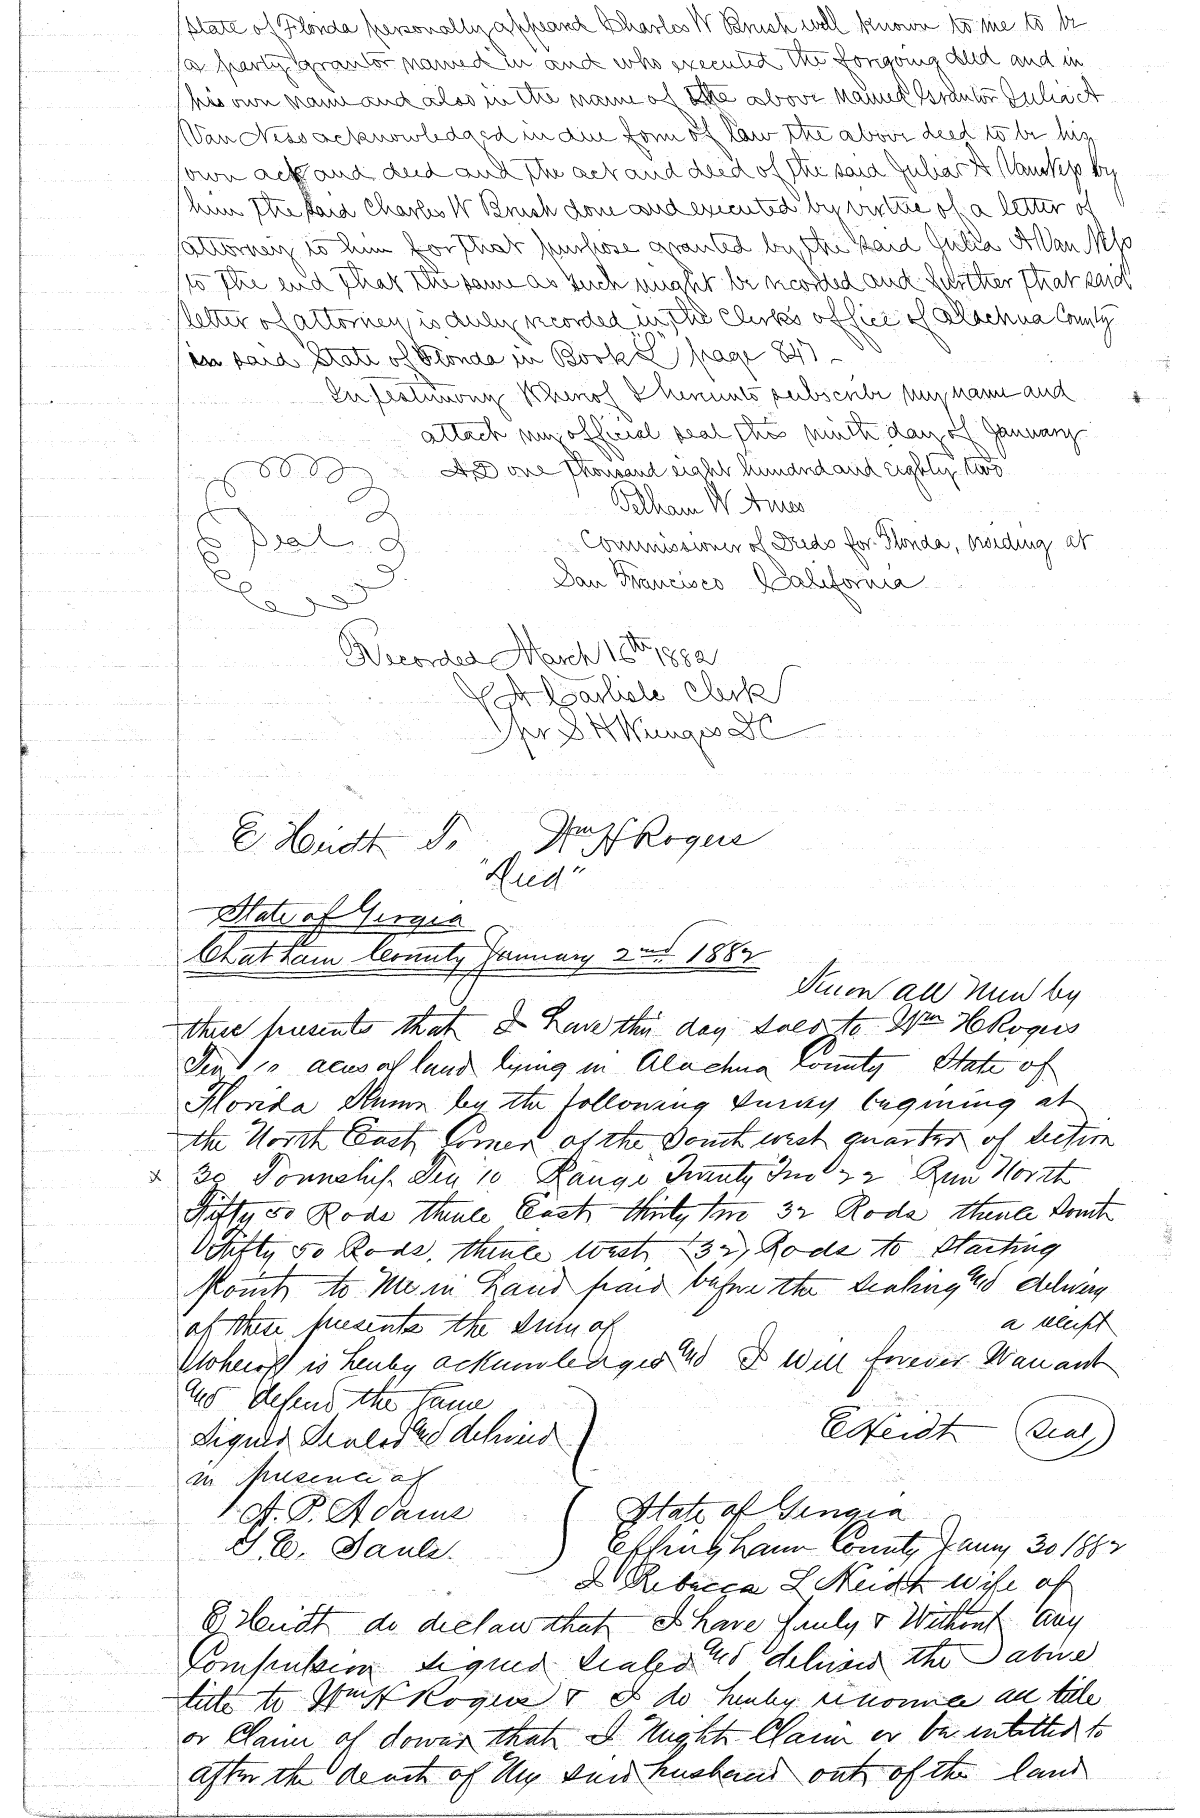 State of Florida personally appeard Charles W Brush well known to me to be
a party grantor named in and who executed the forgoing deed and in
his own name and also in the name of the above named Grantor Julia A
Van Ness acknowledged in due form of law the above deed to be his
own act and deed and the act and deed of the said Juliar A Vanness by
him the said Charles W Brush done and executed by virtue of a letter of
attorney to him for that purpose granted by the said Julia A Van Ness
to the end that the same as such might be recorded and further that said
letter of attorney is duly recorded in the Clerks office of Alachua County
in said State of Florida in Book "L" page 847 -
In testimony Whereof I hereunto subscribe my name and
attach my official seal this ninth day of January
AD one thousand eight hundred and eighty two
Pelham W Ames
Seal
Commissioner of Deeds for Florida, residing at
San Francisco California
Recorded March 16th 1882
J A Carlisle Clerk
pr S H Wienges DC
E. Heidt To Wm H Rogers
"Deed"
State of Gergia
Chatham County January 2nd 1882
Know all Men by
these presents that I have this day sold to Wm H Rogers
Ten 10 acres of land lying in Alachua County State of
Florida Known by the following survey begining at
the North East Corner of the South west quarter of Section
x 30 Township Ten 10 Range Twenty Two 22 Run North
Fifty 50 Rods thence East thirty two 32 Rods thence South
Fifty 50 Rods, thence west (32) Rods to Starting
Point to Me in hand paid before the sealing and delivery
of these presents the sum of a receipt
Whereof is hereby acknowledged and I will forever Warrant
and defend the same
Signed Sealed and delivred E Heidt Seal
in presence of
A. P. Adams State of Gergia
Sauls. Effingham County Jany 30 1882
I Rebecca L Heidt wife of
E Heidt do declaw that I have freely & Without any
Compulsion signed sealed and delivred the above
title to Wm H Rogers & I do hereby renounce all title
or Claim of dower that I Might Claim or be intitled to
after the death of My said husband out of the land